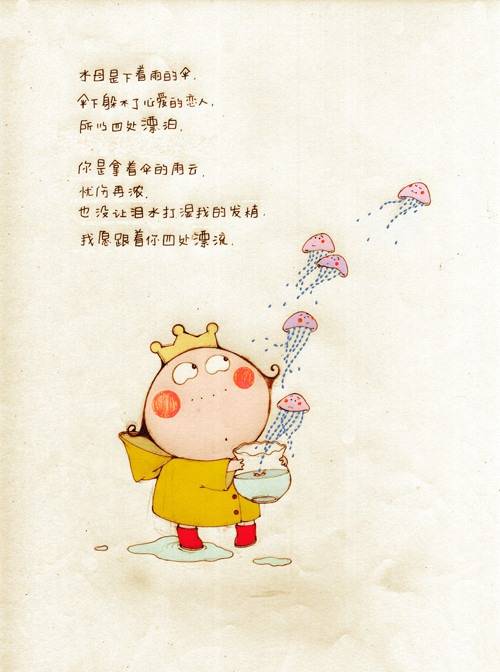 水母是下着雨的伞.
伞下躲不了心爱的恋人,
所以四处漂泊.
你是拿着伞的雨云.
忧伤再浓.
也没让泪水打湿我的发梢.
我愿跟着你四处漂流.